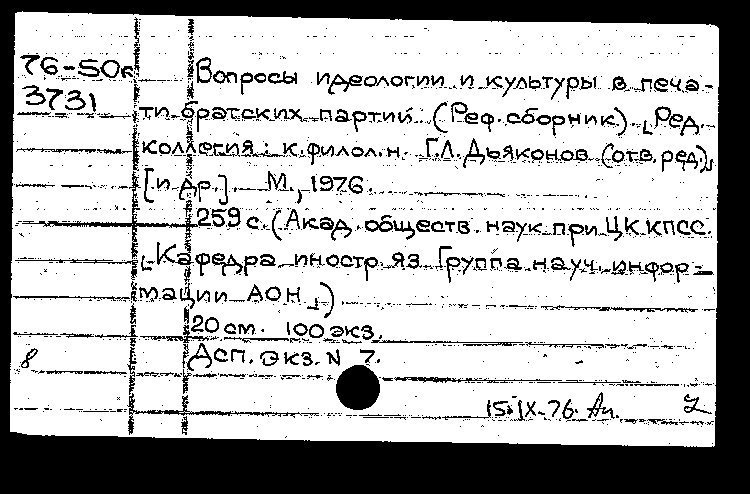 76-50к Вопросы идеологии и культуры в печа-
3731 ти братских партий. (Реф. сборник). [Ред.
коллегия: к.филол.н. Г.Л. Дьяконов (отв. ред.)]
[и др.]. М., 1976.
259 с. (Акад. обществ. наук при ЦК КПСС.
[Кафедра иностр. яз. Группа науч. инфор-
мации АОН])
20 см. 100 экз.
8 Дсп. Экз. N 7.
15.IX-76.